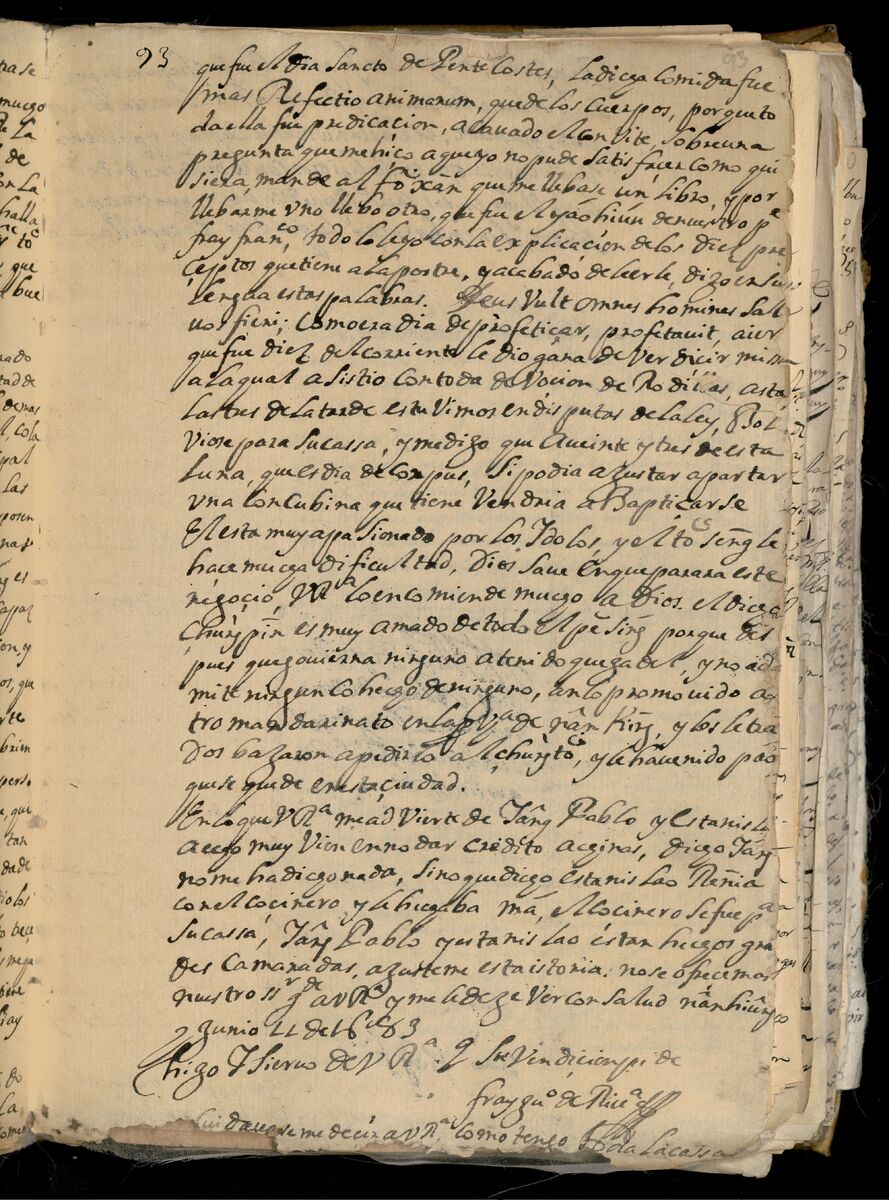 93
que fue el dia Sancto de Pente Costes, la dicga comida fue
mas Refectio animarum, que de los Cuerpos, por que to
da ella fue predicacion, acavado el convite, Sobre una
pregunta que me hiço a que yo no pude Satisfacer como qui
siera, mande al que me llebase un libro, y por
llebarme uno llebo otro, que fue el de nuestro pe
fray franco, todo lo leyo con la explicacion de los diez pre
ceptos que tiene a la postre, y acabado de leerle, dixo en su
lengua estas palabras. Deus Vult omnes homines Sal
uos fieri; Como era dia de profeticar, profetavit, aier
que fue diez del corriente le dio gana de ver dicir missa
a la qual asistio con toda devocion de Rodillas, asta
las tres de la tarde estuvimos en disputas de la ley, Bol
viose para su cassa, y me dixo que a veinte y tres de esta
luna, que es dia de Corpus, si podia axustar apartar
una concubina que tiene vendria a Bapticarse
El esta muy apasionado por los Idolos, y el le
hace mucga dificultad, Dios save en que parara este
negocio, VRa lo encomiende mucgo a Dios. el dicgo
es muy amado de todo el porque des
pues que govierna ninguno a tenido quexa del, y no ad
mite ningun cohecgo de ninguno, anlo promovido a o
tro mandarinato en la pva de nân Kiñg, y los letra
Dos baxaron a pedirlo al y le ha venido
que se quede en esta ciudad.
En lo que VRa me ad Vierte de Iâng Pablo y Estanisla
o ecgo muy Vien en no dar credito a cginos, Diego Iâng
no me ha dicgo nada, sino que dicgo Estanislao Reñia
con el cocinero y le hurgaba ma, el cocinero se fue pa
su cassa, Iâng Pablo y estanislao estan hecgos gran
des Camaradas, axusteme esta istoria: no se ofrece mas
nuestro sr gde a VRa y me le dexe Ver con Salud
y Junio 11 de 1683
hijo y Siervo de VRa q Su Vendicion pi de
fray de Ricca
me decir a VRa como tengo toda la cassa